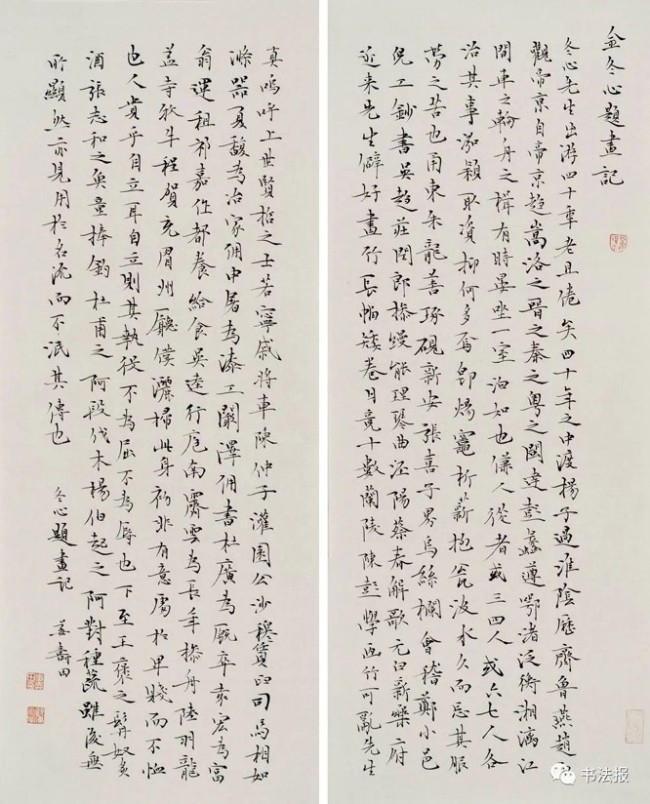 金冬心題畫記
冬心先生出游四十年老且倦矣四十年之中渡楊子過淮陰歷齊魯燕趙而
觀帝京自帝京趨嵩洛之晉之秦之粵之閩達彭蠡遵鄂渚泛衡湘漓江
間車之輪舟之楫有時晏坐一室泊如也傔人從者或三四人或六七人各
治其事泓穎取資抑何多焉即煬竈析薪抱瓮汲水久而忘其服
勞之苦也甬東朱龍善琢硯新安張喜子界烏絲欄會稽鄭小邑
兒工鈔書吳趨莊閏郎操縵能理琴曲涇陽蔡春解歌元白新樂府
近来先生僻好畫竹長幅矮卷日竟十數蘭陵陳彭學畫竹可亂先生
真嗚呼上世賢哲之士若寧戚將車陳仲子灌園公沙穆賃舂司馬相如
滌器夏馥為冶家佣申屠為漆工闞澤佣書杜廣為厩卒袁宏為富
翁運租祁嘉作都養給食吳逵行庖南霽雲為長年操舟陸羽龍
蓋寺牧牛程賀充眉州廳僕灑掃此身初非有意屬於卑賤而不恤
也人貴乎自立耳自立則其執役不為屈不為辱也下至王褒之髯奴負
酒張志和之奐童捧釣杜甫之阿段伐木楊伯起之阿對種蔬雖後無
所顯然亦見用於名流而不泯其傳也
冬心題畫記 姜壽田
书法报